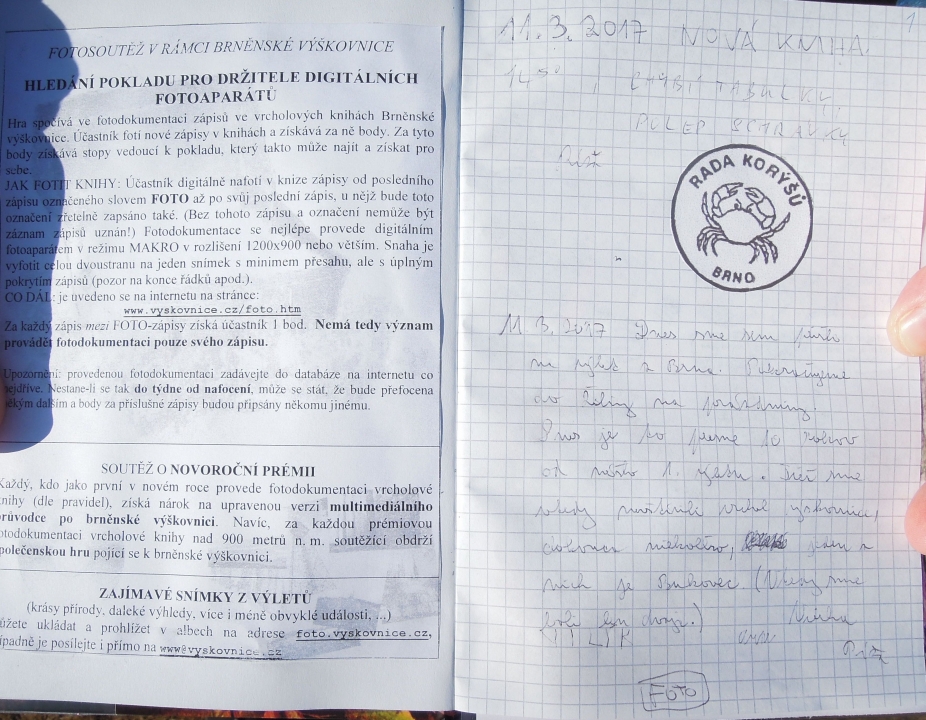 FOTOSOUTĚŽ V RÁMCI BRNĚNSKÉ VÝŠKOVNICE
HLEDÁNÍ POKLADU PRO DRŽITELE DIGITÁLNÍCH
FOTOAPARÁTŮ
Hra spočívá ve fotodokumentaci zápisů ve vrcholových knihách Brněnské
výškovnice. Účastník fotí nové zápisy v knihách a získává za ně body. Za tyto
body získává stopy vedoucí k pokladu, který takto může najít a získat pro
sebe.
JAK FOTIT KNIHY: Účastník digitálně nafotí v knize zápisy od posledního
zápisu označeného slovem FOTO až po svůj poslední zápis, u nějž bude toto
označení zřetelně zapsáno také. (Bez tohoto zápisu a označení nemůže být
záznam zápisů uznán!) Fotodokumentace se nejlépe provede digitálním
fotoaparátem v režimu MAKRO v rozlišení 1200x900 nebo větším. Snaha je
vyfotit celou dvoustranu na jeden snímek s minimem přesahu, ale s úplným
pokrytím zápisů (pozor na konce řádků apod.).
CO DÁL: je uvedeno se na internetu na stránce:
www.vyskovnice.cz/foto.htm
Za každý zápis mezi FOTO-zápisy získá účastník 1 bod. Nemá tedy význam
provádět fotodokumentaci pouze svého zápisu.
Upozornění: provedenou fotodokumentaci zadávejte do databáze na internetu co
nejdříve. Nestane-li se tak do týdne od nafocení, může se stát, že bude přefocena
někým dalším a body za příslušné zápisy budou připsány někomu jinému.
SOUTĚŽ O NOVOROČNÍ PRÉMII
Každý, kdo jako první v novém roce provede fotodokumentaci vrcholové
knihy (dle pravidel), získá nárok na upravenou verzi multimediálního
průvodce po brněnské výškovnici. Navíc, za každou prémiovou
fotodokumentaci vrcholové knihy nad 900 metrů n. m. soutěžící obdrží
společenskou hru pojící se k brněnské výškovnici.
ZAJÍMAVÉ SNÍMKY Z VÝLETŮ
(krásy přírody, daleké výhledy, více i méně obvyklé události, ...)
můžete ukládat a prohlížet v albech na adrese foto.vyskovnice.cz,
případně je posílejte i přímo na www@vyskovnice.cz
1
11.3.2017 NOVÁ KNIHA
14 50 CHYBÍ TABULKY,
RADA KORÝŠŮ
BRNO
11.3.2017 Dnes sme sem
na výlet z Brna.
do na prázdniny.
Dnes je to 10 rokov
od 1.
vtedy
niekoľko, jeden z
nich je Bukovec. (Vtedy sme
boli)
FOTO